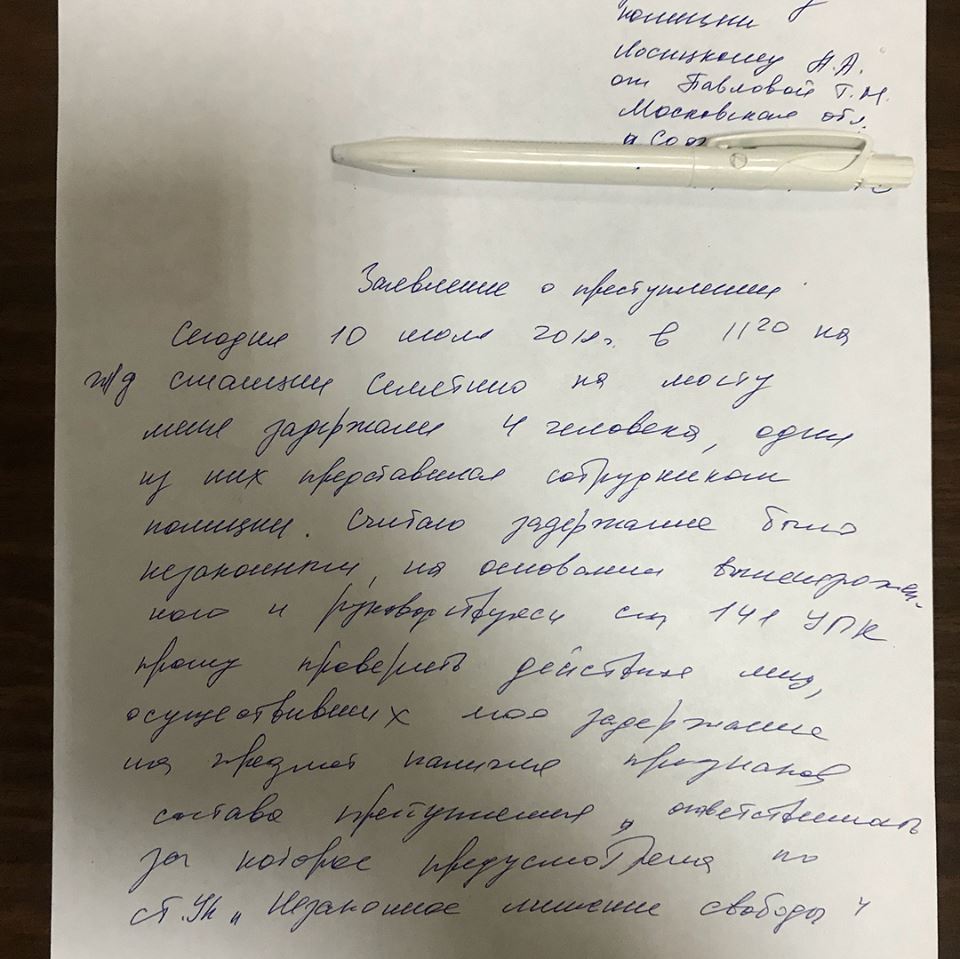 полиции
Лосицкому А.А.
от Павловой Т.М.
Московская обл.
Заявление о преступлении
Сегодня 10 июля 2018г. в 11 20 на
ж/д станции Семятино на мосту
меня задержали 4 человека, один
из них представился сотрудником
полиции. Считаю задержание было
незаконным, на основании вышеизложен-
ного и руководствуясь ст 141 УПК
прошу проверить действия лиц,
осуществивших мое задержание
на предмет наличия признаков
состава преступления, ответственность
за которое предусмотрена по
ст. УК „Незаконное лишение свободы"